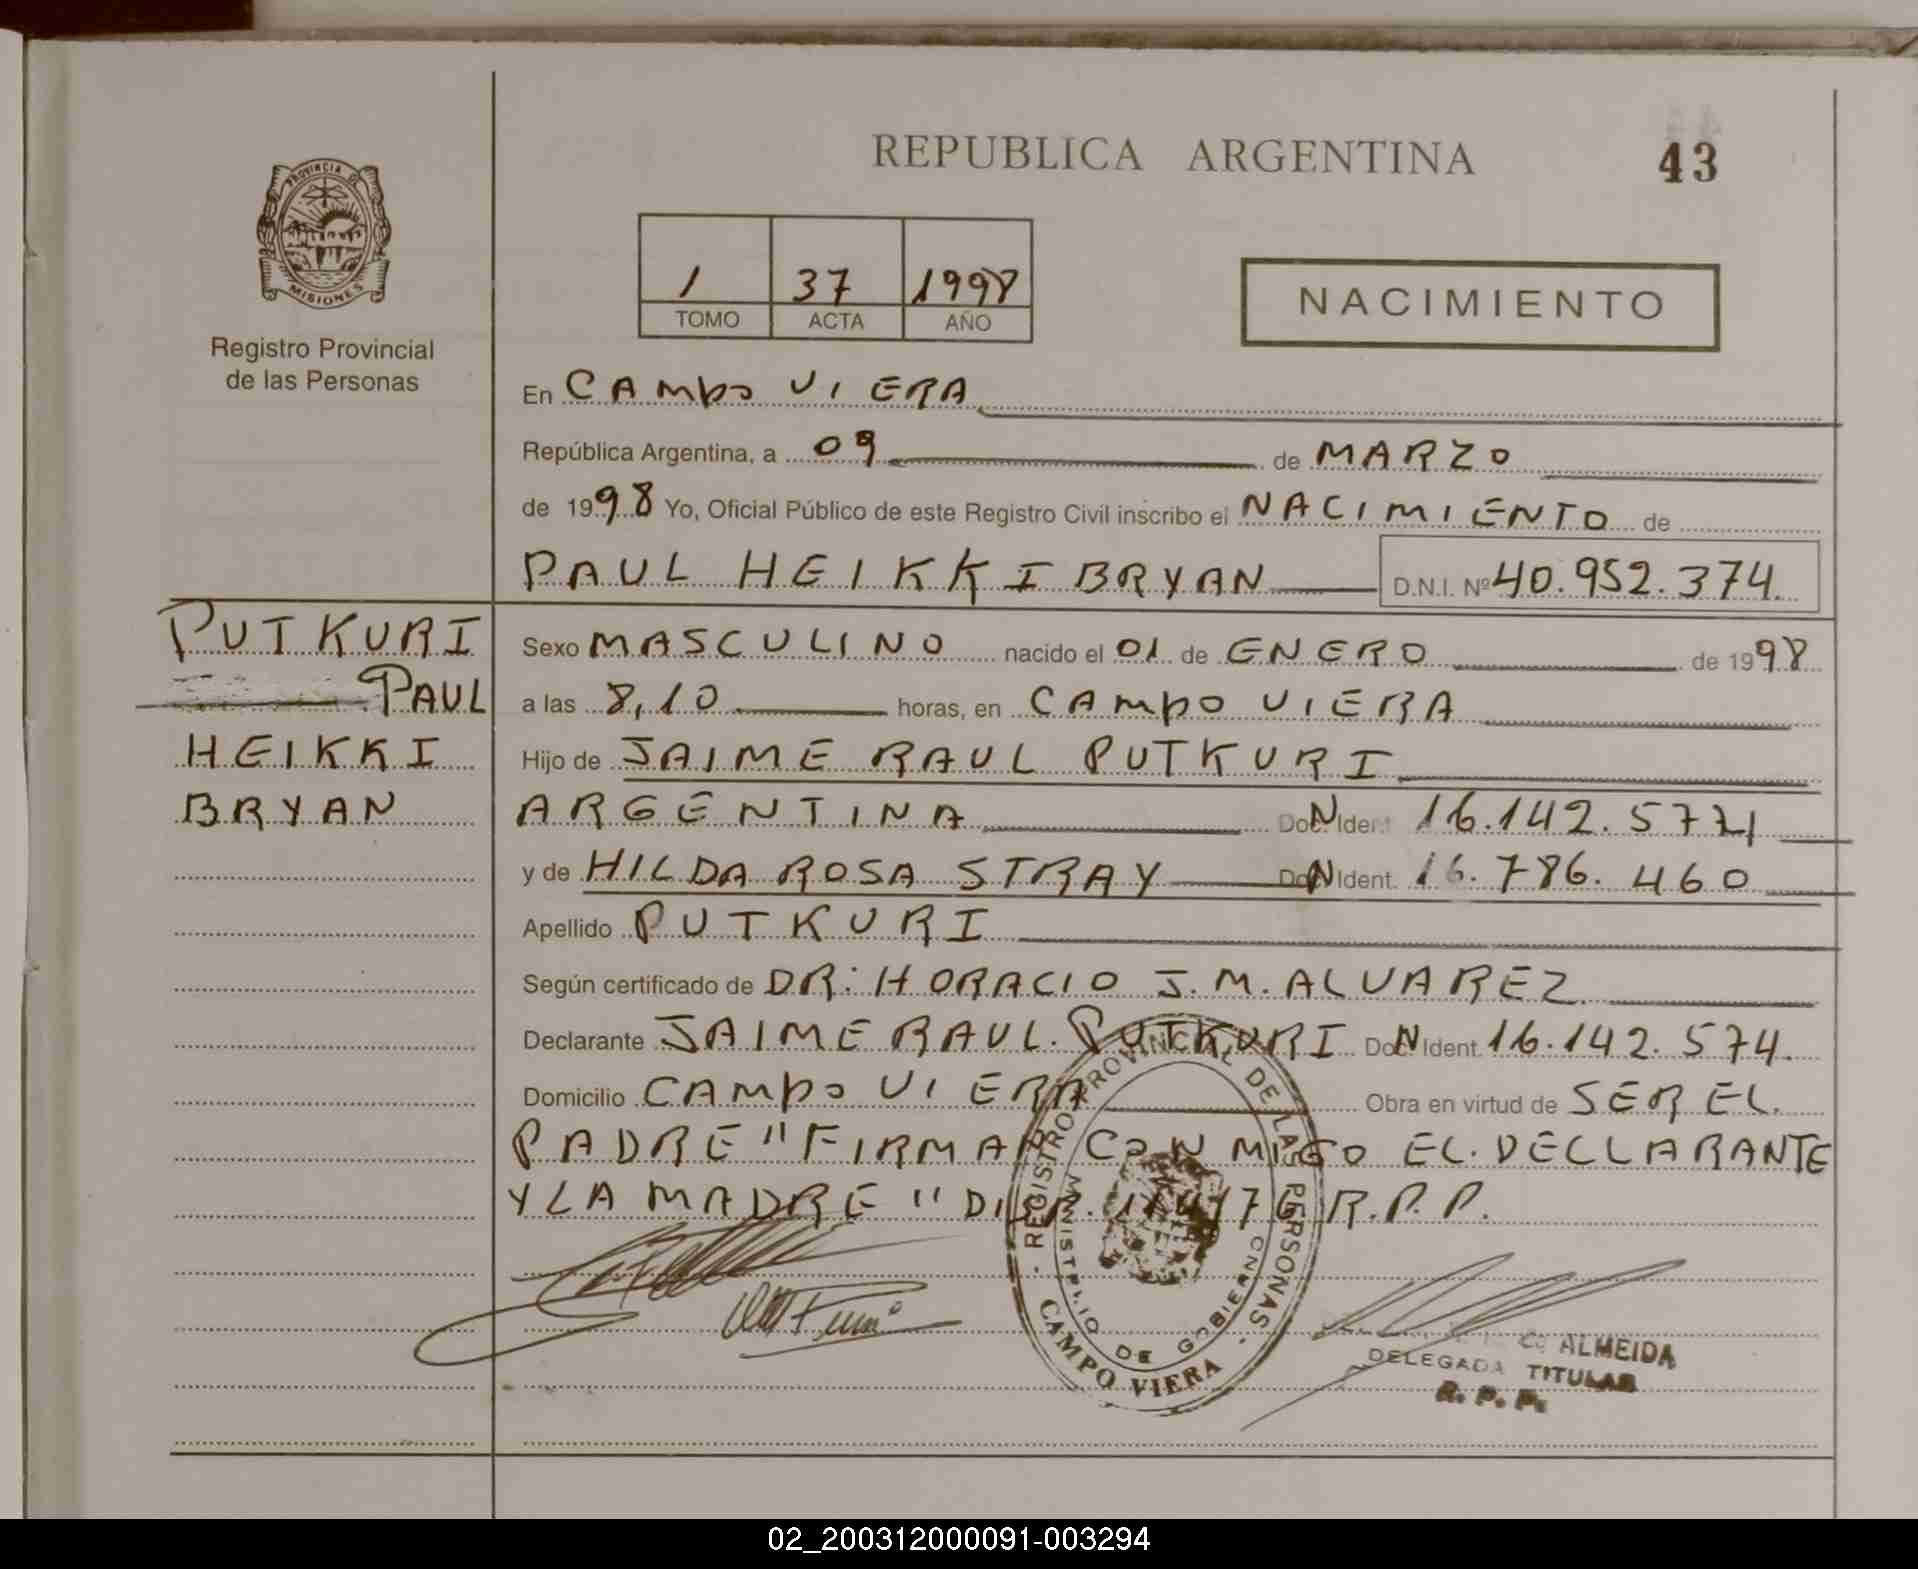 REPUBLICA ARGENTINA
43
PROVINCIA DE
MISIONES
Registro Provincial
de las Personas
1 37 1998
TOMO ACTA AÑO
NACIMIENTO
En CAMPO VIERA
República Argentina, a 09 de MARZO
de 1998 Yo, Oficial Público de este Registro Civil inscribo el NACIMIENTO de
PAUL HEIKKI BRYAN D.N.I. Nº 40.952.374.
PUTKURI
PAUL
HEIKKI
BRYAN
Sexo MASCULINO nacido el 01 de ENERO de 1998
a las 8,10 horas, en CAMPO VIERA
Hijo de JAIME RAUL PUTKURI
ARGENTINA Doc. N Ident. 16.142.57
y de HILDA ROSA STRAY Doc. N Ident. 16.786.460
Apellido PUTKURI
Según certificado de DR: HORACIO J.M. ALVAREZ
Declarante JAIME RAUL. PUTKURI Doc. N Ident. 16.142.574.
Domicilio CAMPO VIERA Obra en virtud de SER EL.
PADRE "FIRMAN CON MIGO EL. DECLARANTE
Y LA MADRE" R.P.P.
REGISTRO PROVINCIAL DE LAS PERSONAS
MINISTERIO DE GOBIERNO
CAMPO VIERA
ALMEIDA
DELEGADA TITULAR
R. P. P.
02_200312000091-003294